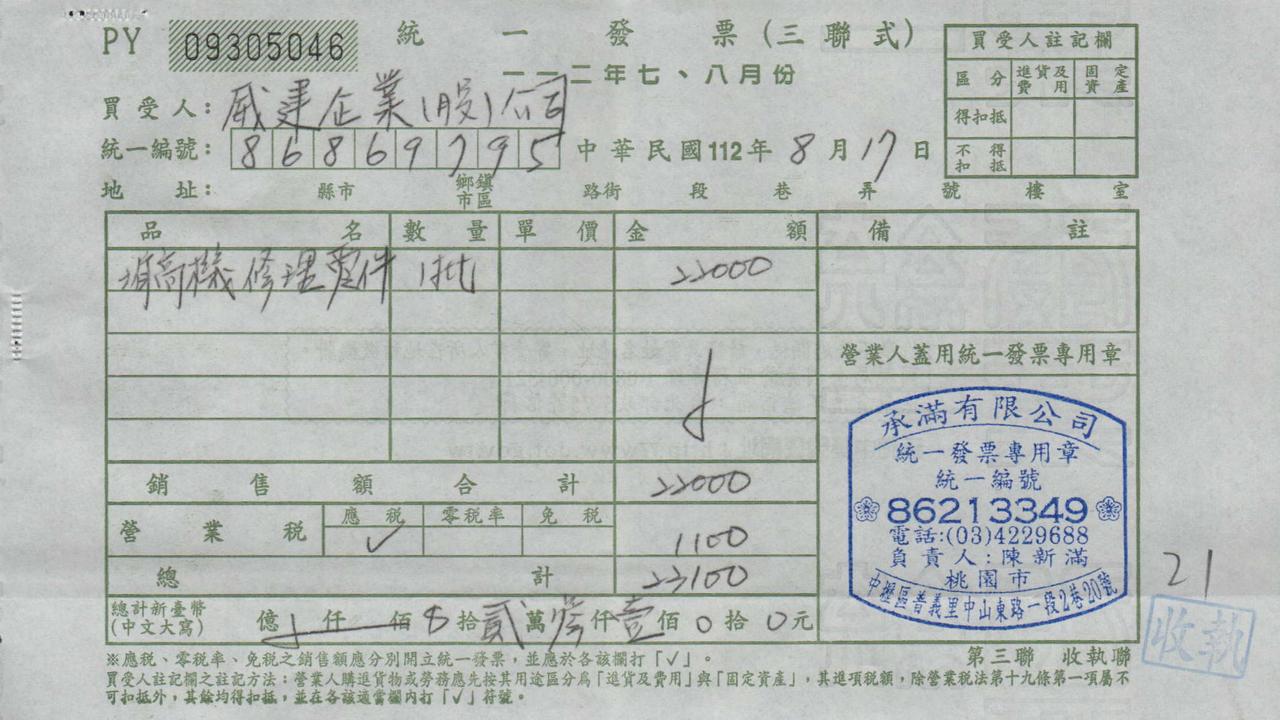 PY 09305046 統一發票(三聯式)
一一二年七、八月份
買受人註記欄
區分 進貨及費用 固定資產
得扣抵
不得扣抵
買受人: 威建企業(股)公司
統一編號: 86869795 中華民國112年8月17日
地址: 縣市 鄉鎮市區 路街 段 巷 弄 號 樓 室
品名 數量 單價 金額 備註
堆高機修理零件 1批 22000
營業人蓋用統一發票專用章
銷售額合計 22000
營業稅 應稅 ✓ 零稅率 免稅 1100
總計 23100
總計新臺幣(中文大寫) 億 仟 佰 0 拾 貳 萬 參 仟 壹 佰 0 拾 0 元
承滿有限公司
統一發票專用章
統一編號
86213349
電話:(03)4229688
負責人:陳新滿
桃園市
中壢區普義里中山東路一段2巷20號
21
收執
第三聯 收執聯
※應稅、零稅率、免稅之銷售額應分別開立統一發票,並應於各該欄打「✓」。
買受人註記欄之註記方法:營業人購進貨物或勞務應先按其用途區分為「進貨及費用」與「固定資產」,其進項稅額,除營業稅法第十九條第一項屬不
可扣抵外,其餘均得扣抵,並在各該適當欄內打「✓」符號。